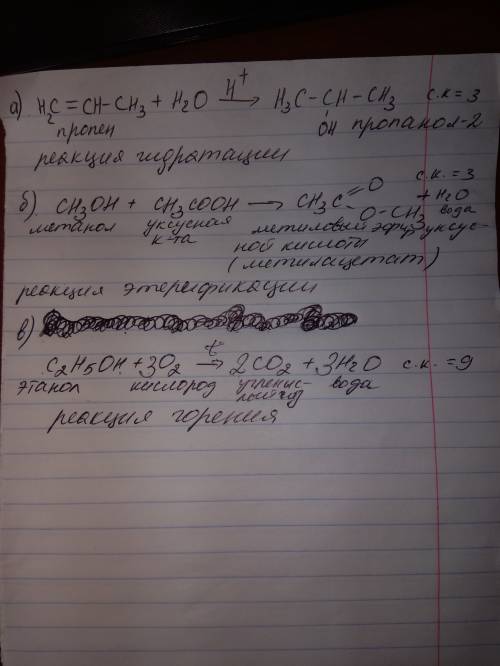 а) H₂C=CH-CH₃ + H₂O —H⁺→ H₃C-CH-CH₃ с.к=3
пропен OH пропанол-2
реакция гидратации
с.к.=3
б) CH₃OH + CH₃COOH → CH₃C=O O-CH₃ + H₂O
метанол уксусная к-та метиловый эфир уксусной кислоты вода
(метилацетат)
реакция этерификации
в)
C₂H₅OH + 3O₂ —t→ 2CO₂ + 3H₂O с.к.=9
этанол кислород вода
реакция горения